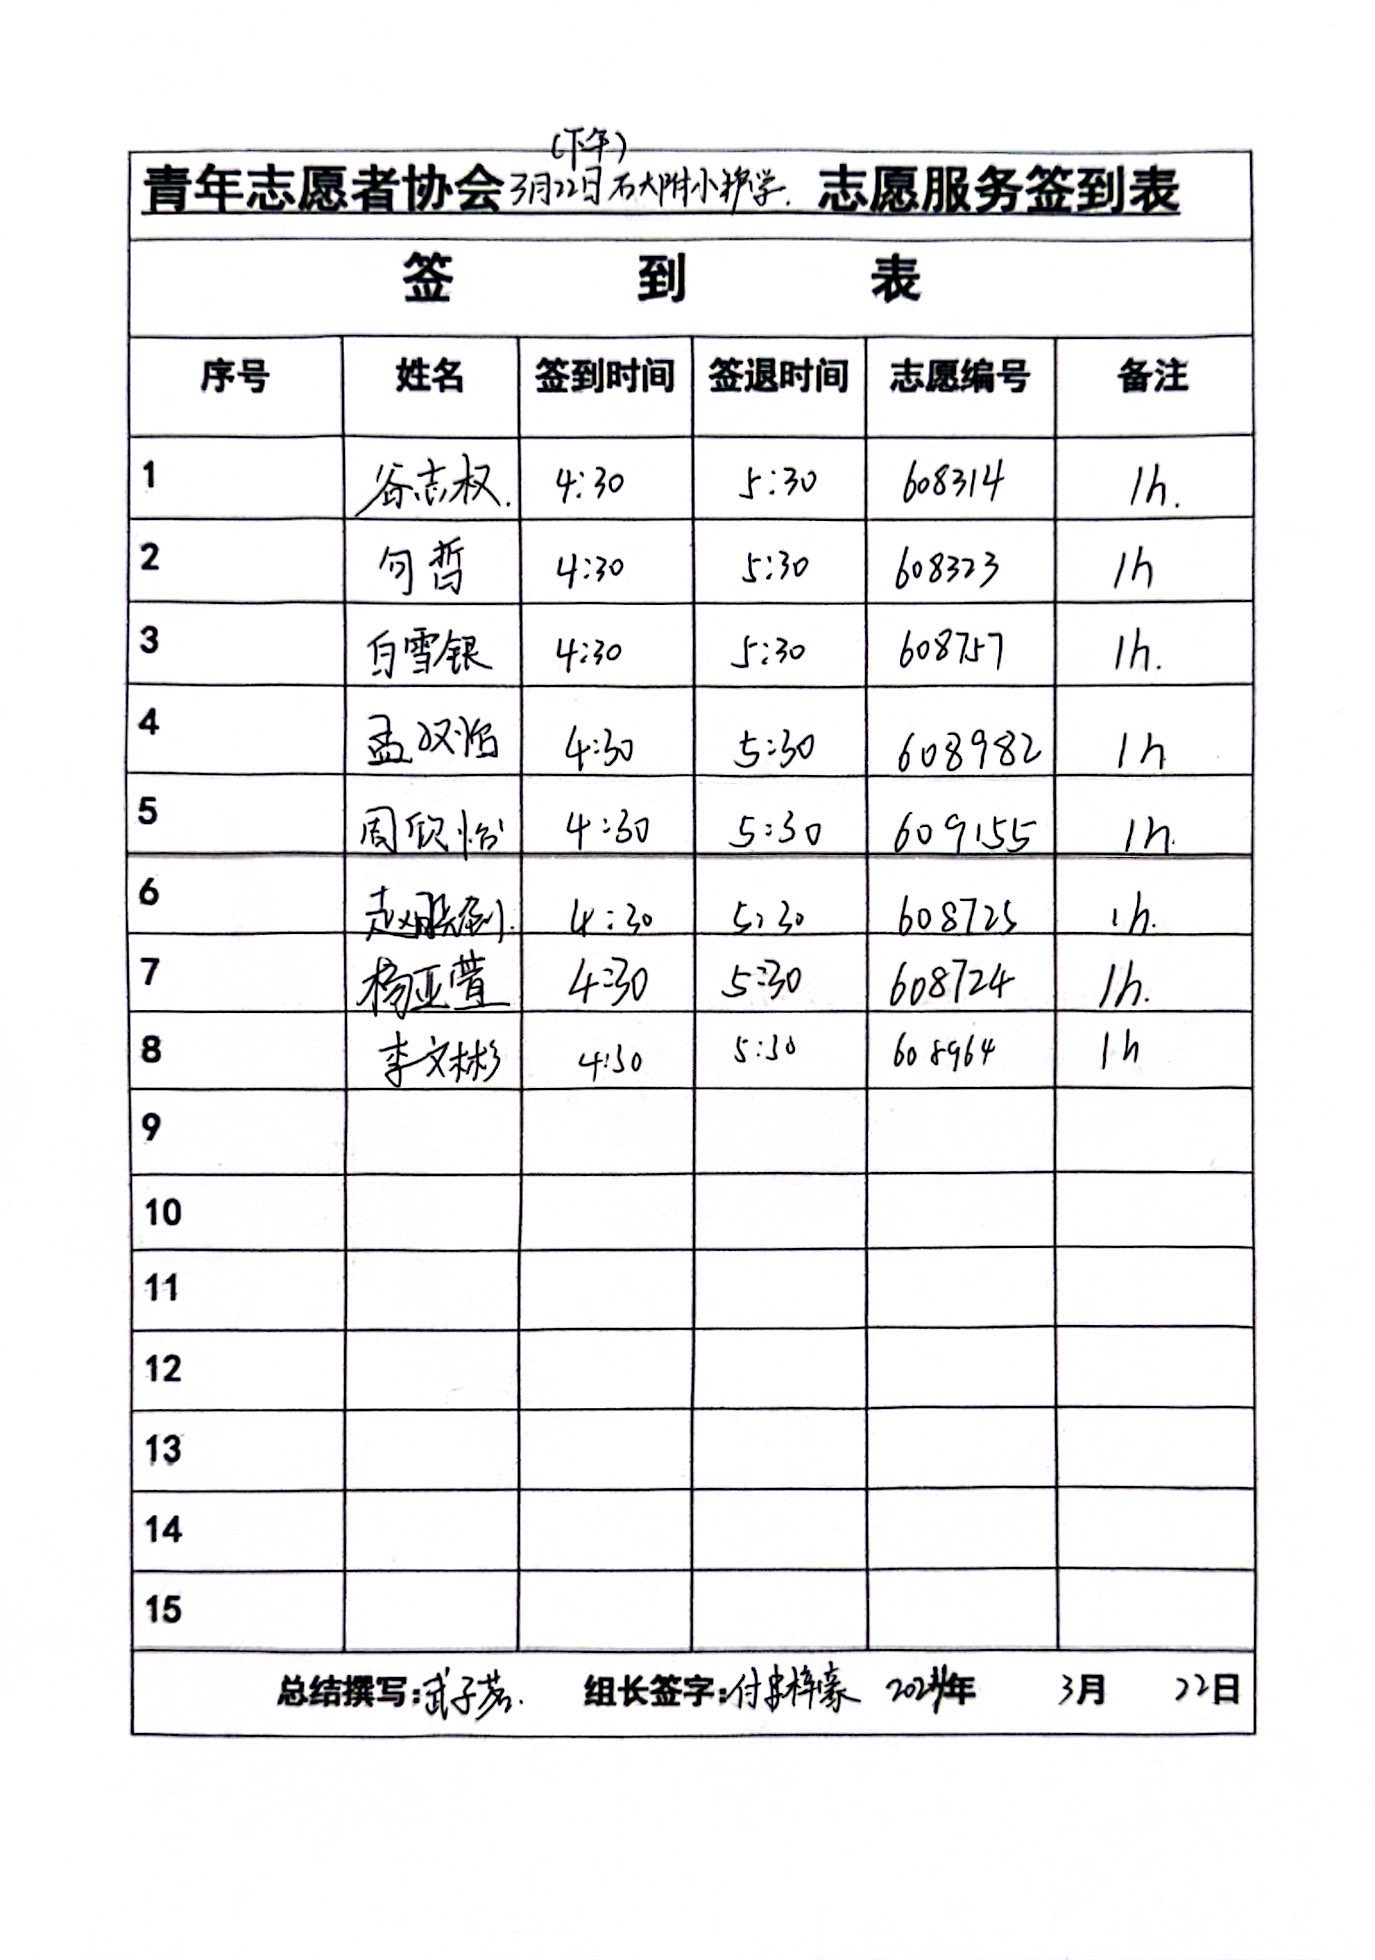 (下午)
青年志愿者协会3月22日石大附小护学. 志愿服务签到表
签 到 表
序号 姓名 签到时间 签退时间 志愿编号 备注
1 谷志权. 4:30 5:30 608314 1h.
2 勾哲 4:30 5:30 608323 1h
3 白雪银 4:30 5:30 608757 1h.
4 孟双 4:30 5:30 608982 1h
5 周欣怡 4:30 5:30 609155 1h.
6 赵 4:30 5:30 608725 1h.
7 杨亚萱 4:30 5:30 608724 1h.
8 李文彬 4:30 5:30 608964 1h
9
10
11
12
13
14
15
总结撰写:武子茗. 组长签字:付梓豪 2024年 3月 22日